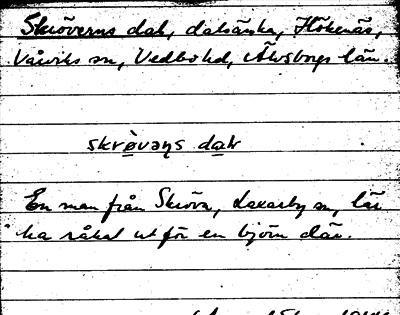 Skröverns dal, dalsänka, Hökenäs,
Vårviks sn, Vedbo hd, Älvsborgs län.
skrö̀vəṇs dal
En man från Skröva, Laxarby sn, lär
ha råkat ut för en björn där.